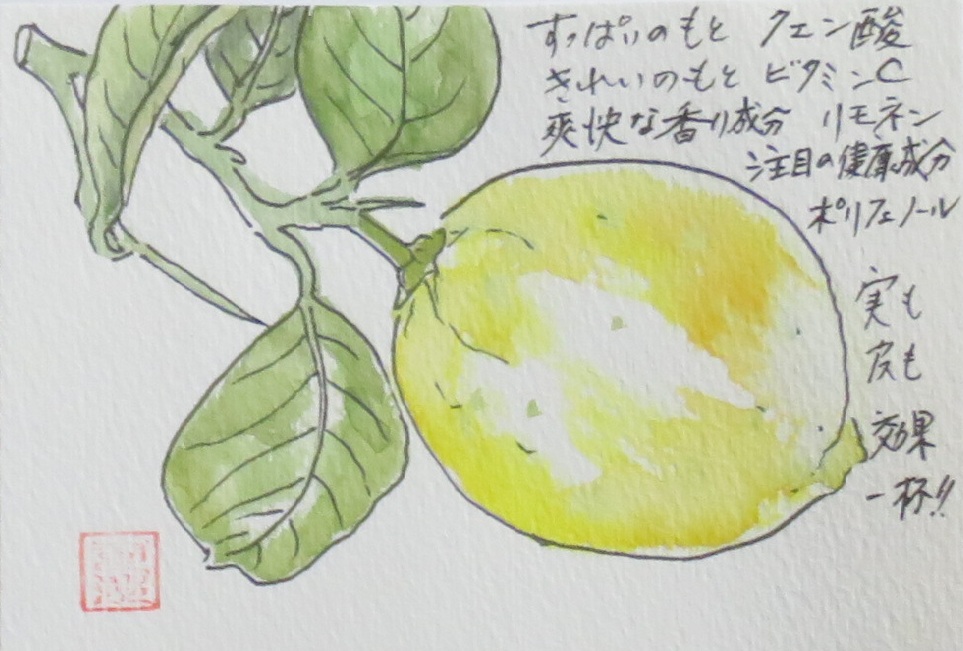 すっぱいのもと クエン酸
きれいのもと ビタミンC
爽快な香り成分 リモネン
注目の健康成分
ポリフェノール
実も
皮も
効果
一杯!!